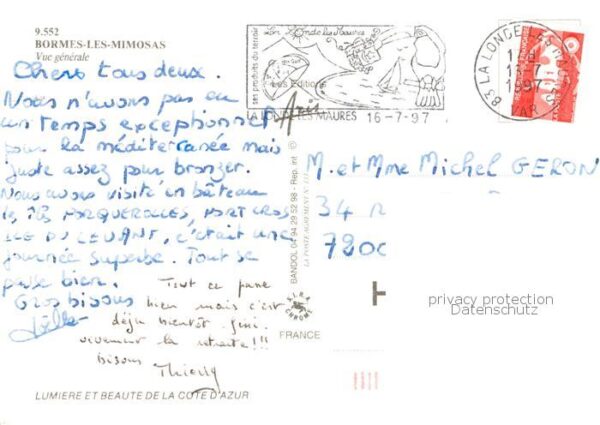 9.552
BORMES-LES-MIMOSAS
Vue générale
Chers tous deux.
Nous n'avons pas eu
un temps exceptionnel
pour la méditerranée mais
juste assez pour bronzer.
Nous avons visité en bâteau
les îles PORQUEROLLES, PORT CROS
ILE DU LEVANT, c'était une
journée superbe. Tout se
passe bien.
Gros bisous
Joëlle
Tout ce passe
bien mais c'est
déjà bientôt fini.
vivement la retraite!!!
Bisous
Thierry
LUMIERE ET BEAUTE DE LA COTE D'AZUR
ses produits du terroir
La Londe les Maures
Les Editions
Aris
LA LONDE LES MAURES 16-7-97
83 LA LONDE LES MAURES
16-7
1997
VAR
BANDOL 04 94 29 52 98 - Rep. int. ©
FRANCE
M. et Mme Michel GERON
34 R
7200
privacy protection
Datenschutz